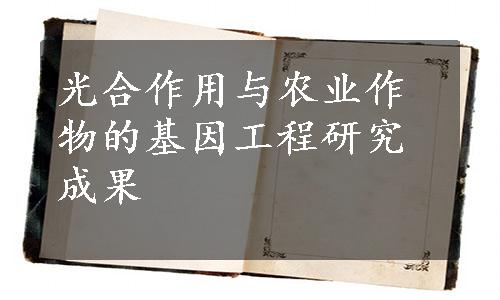 光合作用与农业作
物的基因工程研究
成果